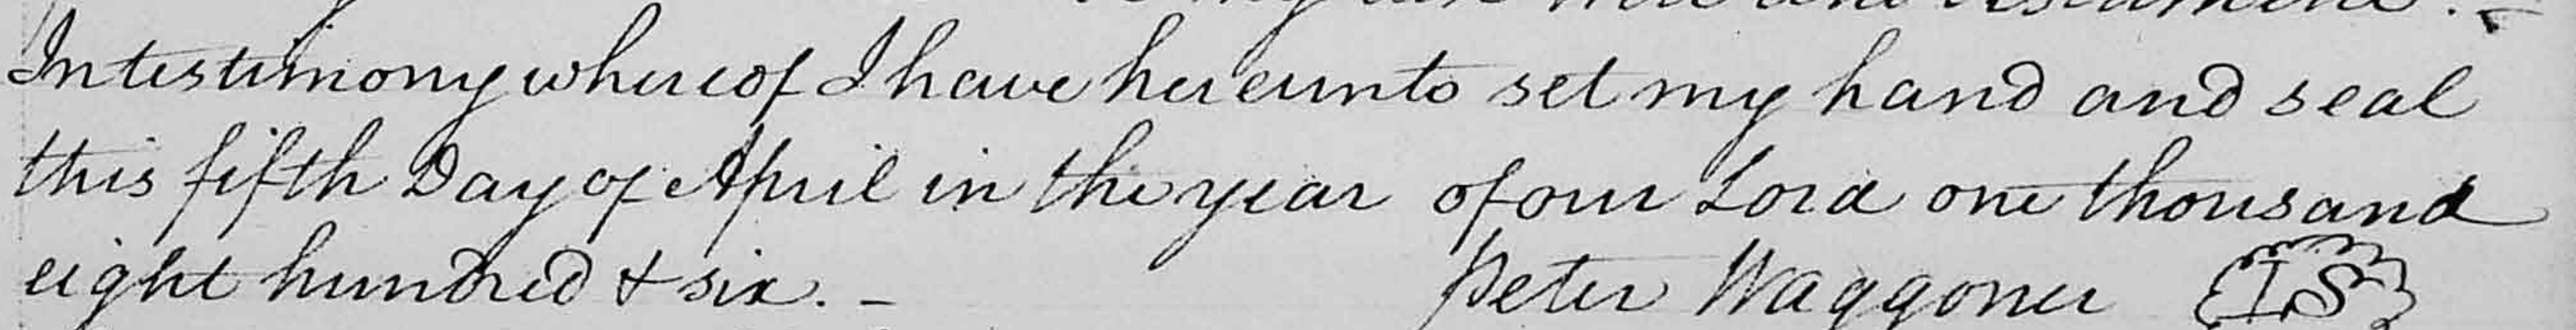 my last will and testament. -
In testimony whereof I have hereunto set my hand and seal
this fifth Day of April in the year of our Lord one thousand
eight hundred & six. -
Peter Waggoner LS